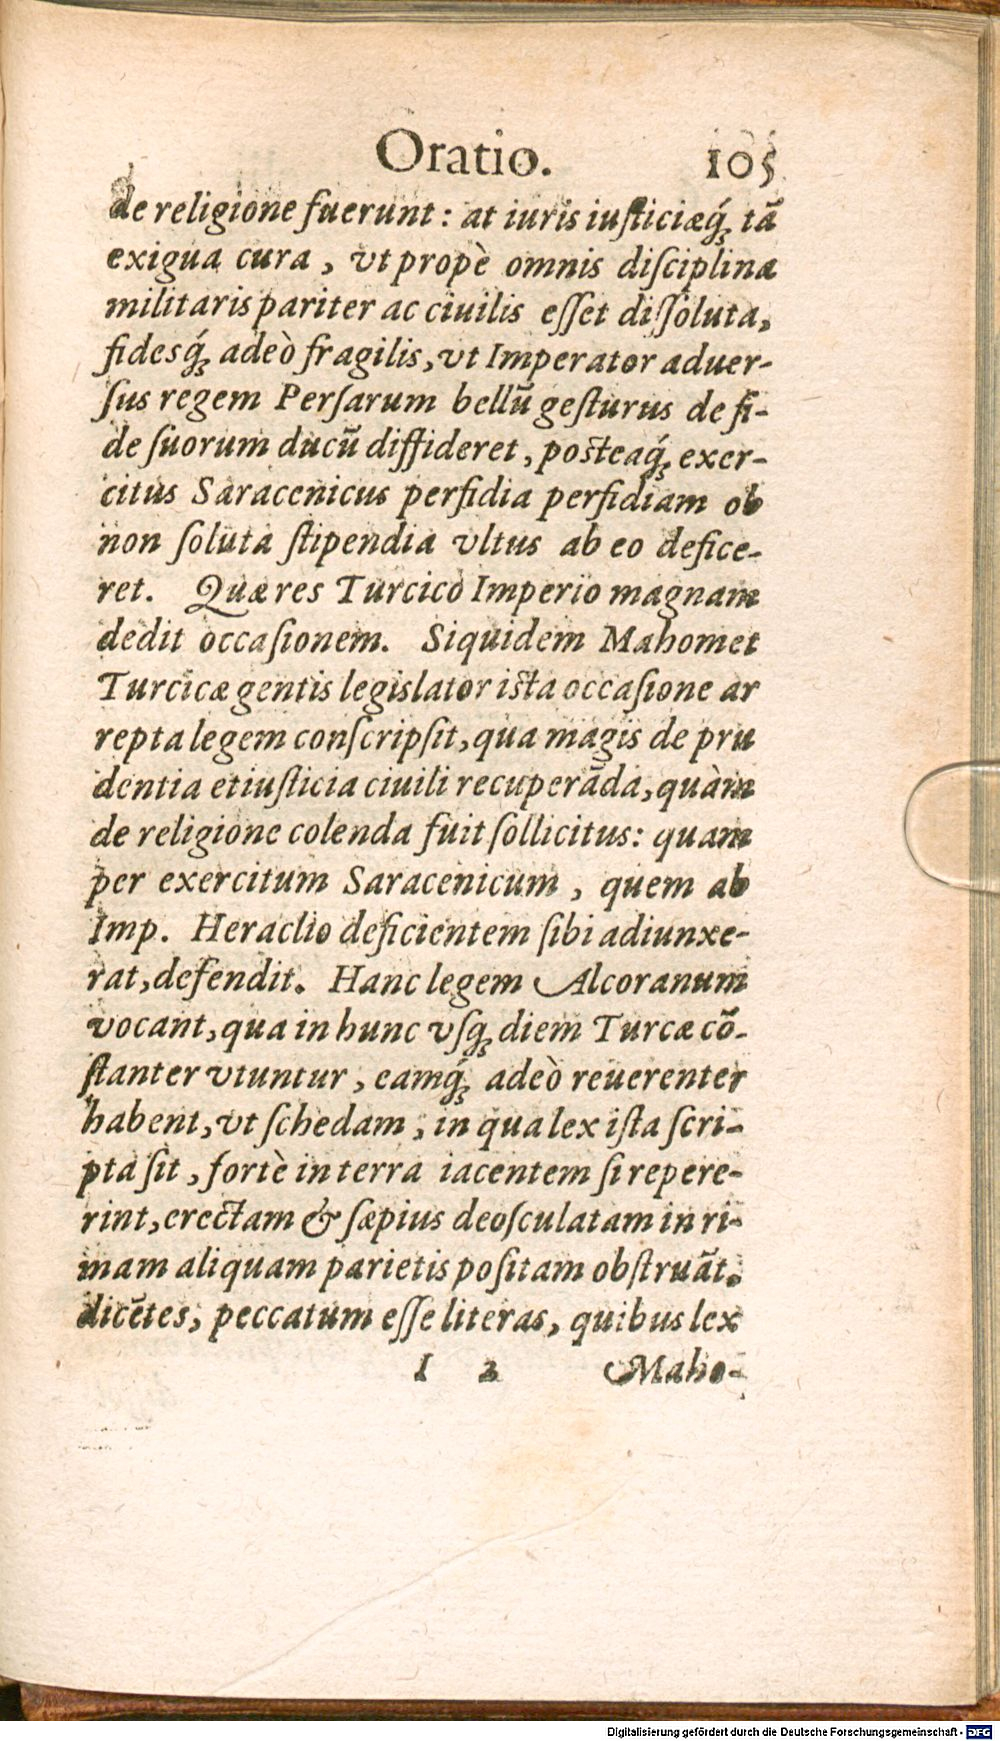 Oratio. 105
de religione fuerunt: at iuris iuſticiæq́ꝫ tã
exigua cura, vt propè omnis diſciplina
militaris pariter ac ciuilis eſſet diſſoluta,
fidesq́ꝫ adeò fragilis, vt Imperator aduer-
ſus regem Perſarum bellũ geſturus de fi-
de ſuorum ducũ diffideret, posteaq́ꝫ exer-
citus Saracenicus perfidia perfidiam ob
non ſoluta ſtipendia vltus ab eo defice-
ret. Quæ res Turcico Imperio magnam
dedit occaſionem. Siquidem Mahomet
Turcicæ gentis legislator ista occaſione ar
repta legem conſcripſit, qua magis de pru
dentia et iuſticia ciuili recuperãda, quàm
de religione colenda fuit ſollicitus: quam
per exercitum Saracenicum, quem ab
Imp. Heraclio deficientem ſibi adiunxe-
rat, defendit. Hanc legem Alcoranum
vocant, qua in hunc vſqꝫ diem Turcæ cõ-
ſtanter vtuntur, eamq́ꝫ adeò reuerenter
habent, vt ſchedam, in qua lex iſta ſcri-
pta ſit, fortè in terra iacentem ſi repere-
rint, erectam & ſæpius deoſculatam in ri-
mam aliquam parietis poſitam obſtruãt,
dicẽtes, peccatum eſſe literas, quibus lex
I 2 Maho-
Digitalisierung gefördert durch die Deutsche Forschungsgemeinschaft - DFG